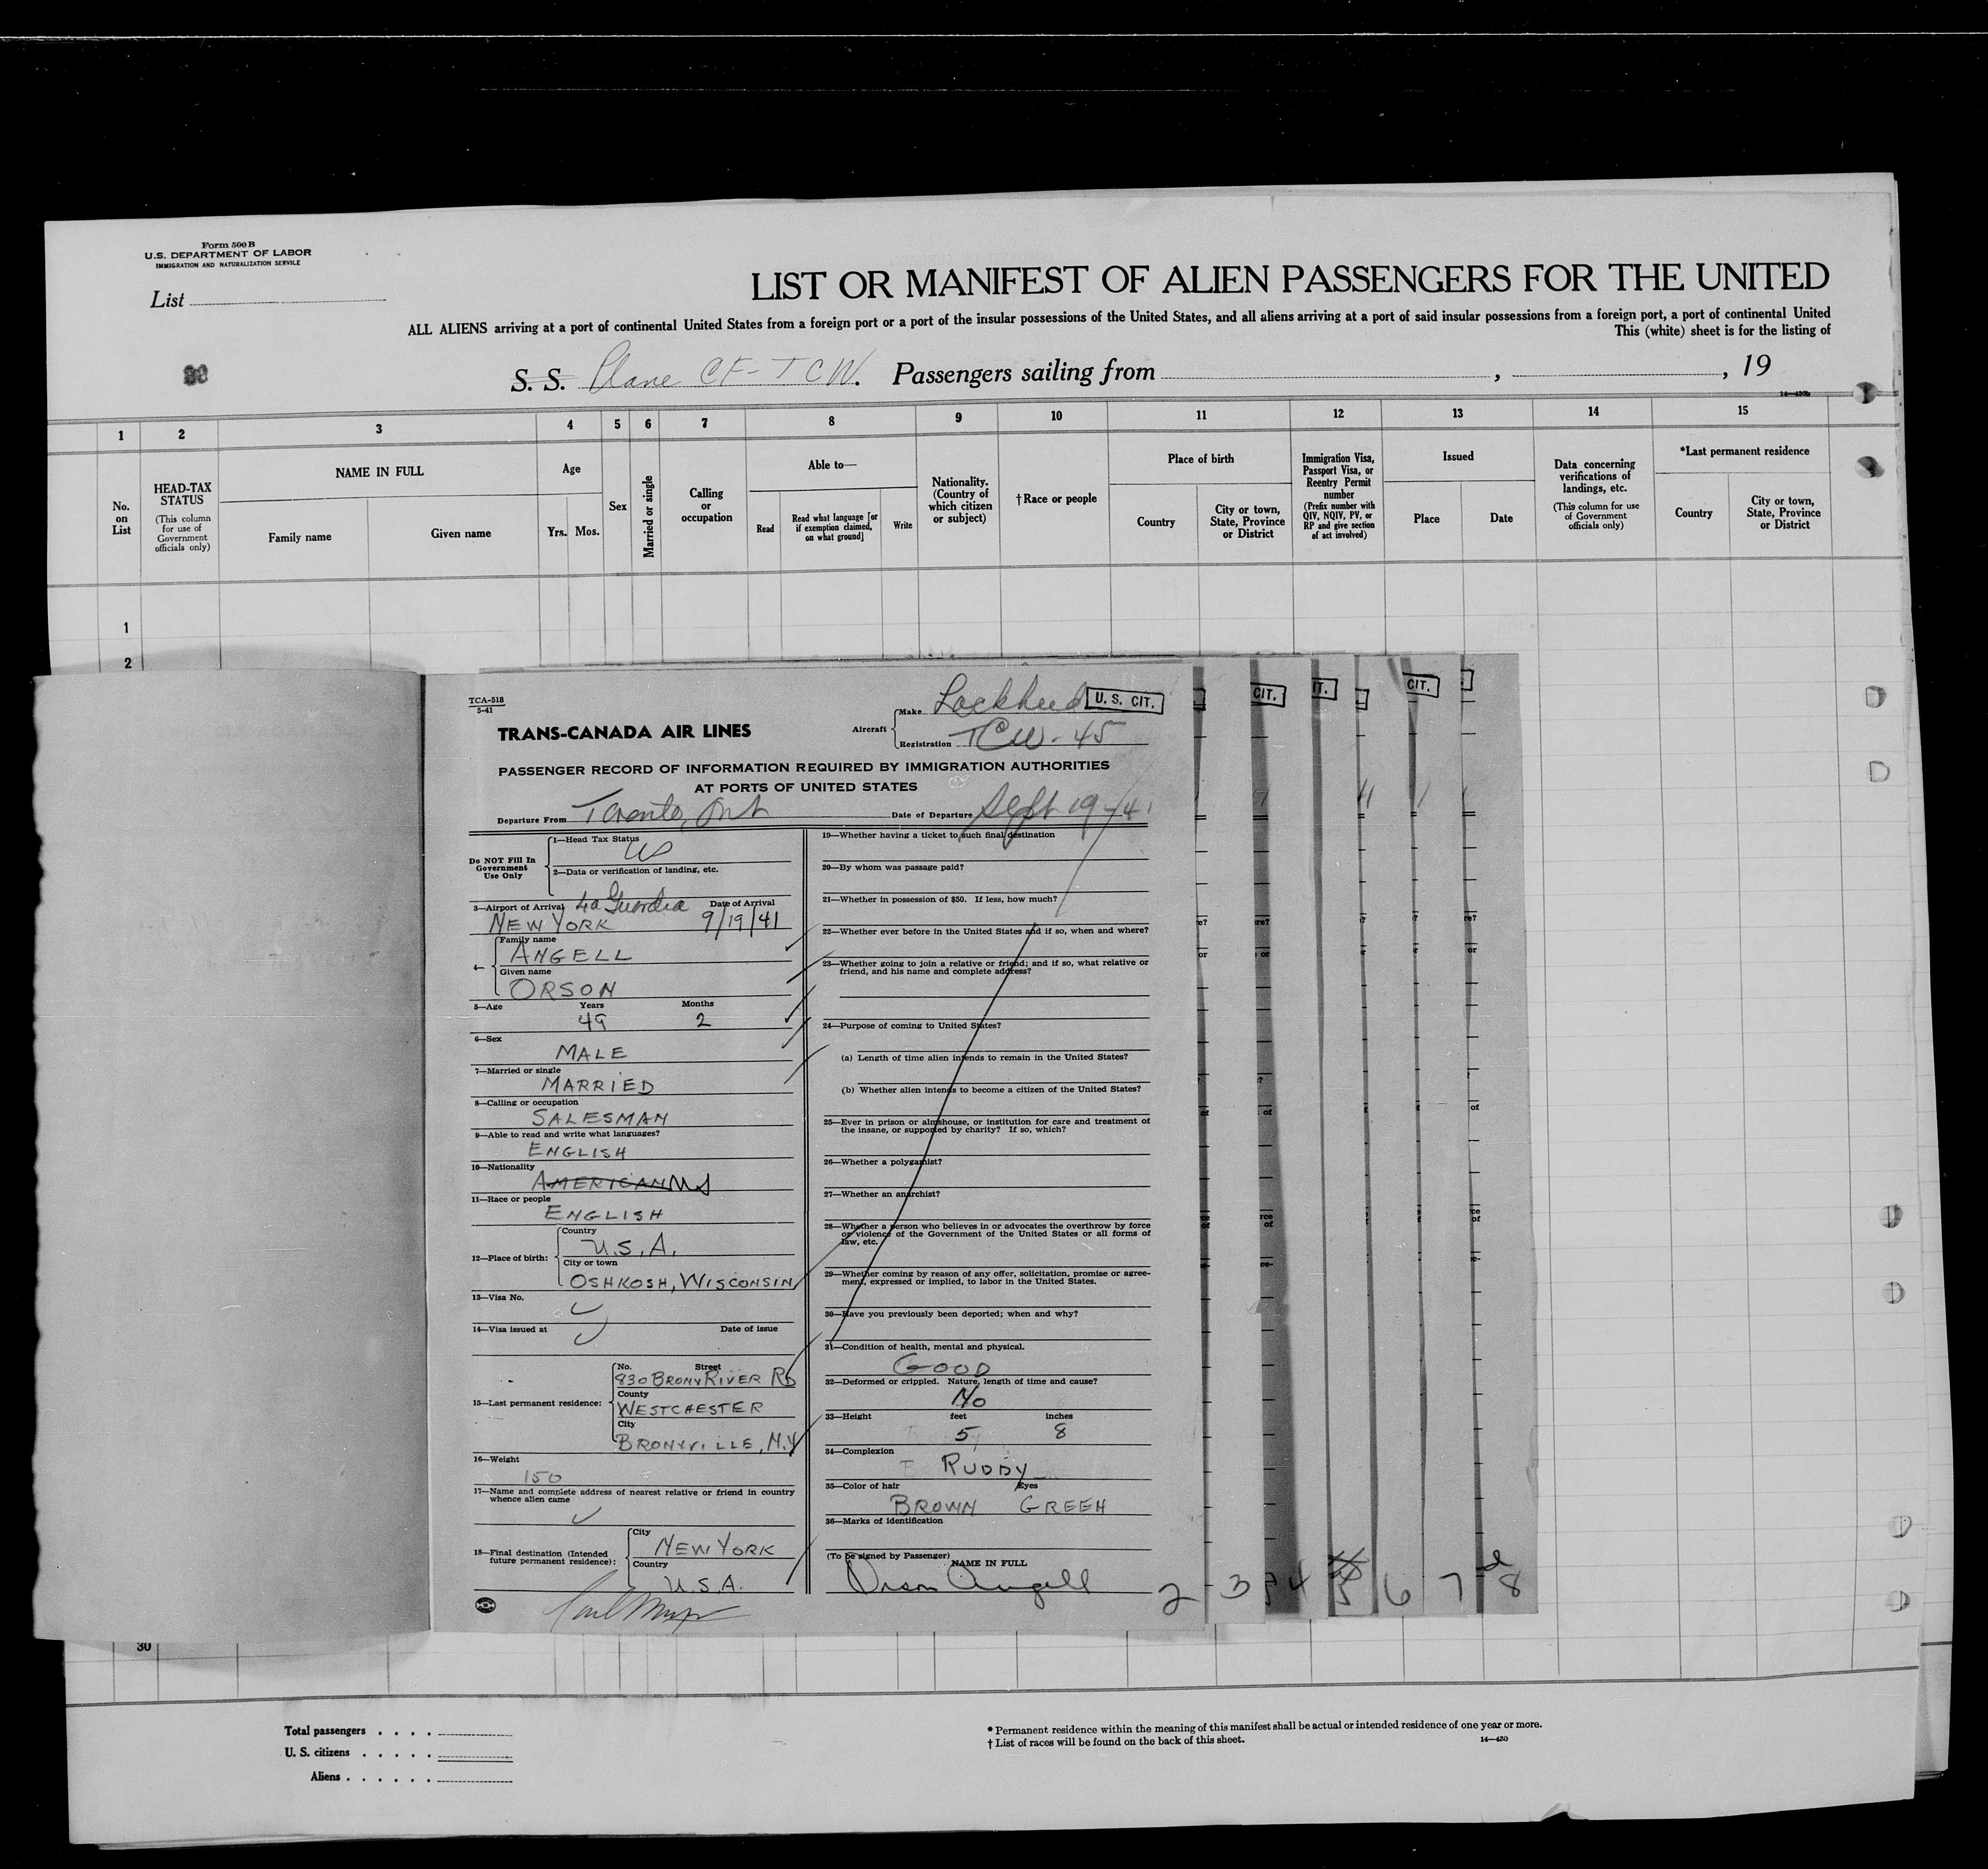 Form 500 B
U.S. DEPARTMENT OF LABOR
IMMIGRATION AND NATURALIZATION SERVICE
List
LIST OR MANIFEST OF ALIEN PASSENGERS FOR THE UNITED
ALL ALIENS arriving at a port of continental United States from a foreign port or a port of the insular possessions of the United States, and all aliens arriving at a port of said insular possessions from a foreign port, a port of continental United
This (white) sheet is for the listing of
S. S. Plane CF-TCW. Passengers sailing from , , 19
1 2 3 4 5 6 7 8 9 10 11 12 13 14 15
No. on List
HEAD-TAX STATUS
(This column for use of Government officials only)
NAME IN FULL
Family name Given name
Age
Yrs. Mos.
Sex
Married or single
Calling or occupation
Able to—
Read
Read what language [or if exemption claimed, on what ground]
Write
Nationality. (Country of which citizen or subject)
†Race or people
Place of birth
Country
City or town, State, Province or District
Immigration Visa, Passport Visa, or Reentry Permit number
(Prefix number with QIV, NQIV, PV, or RP and give section of act involved)
Issued
Place Date
Data concerning verifications of landings, etc.
(This column for use of Government officials only)
*Last permanent residence
Country
City or town, State, Province or District
1
2
TCA-518
5-41
TRANS-CANADA AIR LINES
Aircraft
Make Lockheed
U. S. CIT.
Registration TCW-45
PASSENGER RECORD OF INFORMATION REQUIRED BY IMMIGRATION AUTHORITIES
AT PORTS OF UNITED STATES
Departure From Toronto, Ont Date of Departure Sept 19-/41
Do NOT Fill In Government Use Only
1—Head Tax Status
US
2—Data or verification of landing, etc.
3—Airport of Arrival La Guardia Date of Arrival
NEW YORK 9/19/41
4—
Family name
ANGELL
Given name
ORSON
5—Age Years Months
49 2
6—Sex
MALE
7—Married or single
MARRIED
8—Calling or occupation
SALESMAN
9—Able to read and write what languages?
ENGLISH
10—Nationality
AMERICAN US
11—Race or people
ENGLISH
12—Place of birth:
Country
U.S.A.
City or town
OSHKOSH, WISCONSIN
13—Visa No.
14—Visa issued at Date of issue
15—Last permanent residence:
No. Street
830 BRONX RIVER RD
County
WESTCHESTER
City
BRONXVILLE, N.Y
16—Weight
150
17—Name and complete address of nearest relative or friend in country
whence alien came
18—Final destination (Intended
future permanent residence):
City
NEW YORK
Country
U.S.A.
19—Whether having a ticket to such final destination
20—By whom was passage paid?
21—Whether in possession of $50. If less, how much?
22—Whether ever before in the United States and if so, when and where?
23—Whether going to join a relative or friend; and if so, what relative or
friend, and his name and complete address?
24—Purpose of coming to United States?
(a) Length of time alien intends to remain in the United States?
(b) Whether alien intends to become a citizen of the United States?
25—Ever in prison or almshouse, or institution for care and treatment of
the insane, or supported by charity? If so, which?
26—Whether a polygamist?
27—Whether an anarchist?
28—Whether a person who believes in or advocates the overthrow by force
or violence of the Government of the United States or all forms of
law, etc.
29—Whether coming by reason of any offer, solicitation, promise or agree-
ment, expressed or implied, to labor in the United States.
30—Have you previously been deported; when and why?
31—Condition of health, mental and physical.
GOOD
32—Deformed or crippled. Nature, length of time and cause?
No
33—Height feet inches
5 8
34—Complexion
RUDDY
35—Color of hair Eyes
BROWN GREEN
36—Marks of identification
(To be signed by Passenger)
NAME IN FULL
Orson Angell
CIT. IT. CIT.
2 3 4 5 6 7 8
30
Total passengers
U. S. citizens
Aliens
* Permanent residence within the meaning of this manifest shall be actual or intended residence of one year or more.
† List of races will be found on the back of this sheet.
14—430